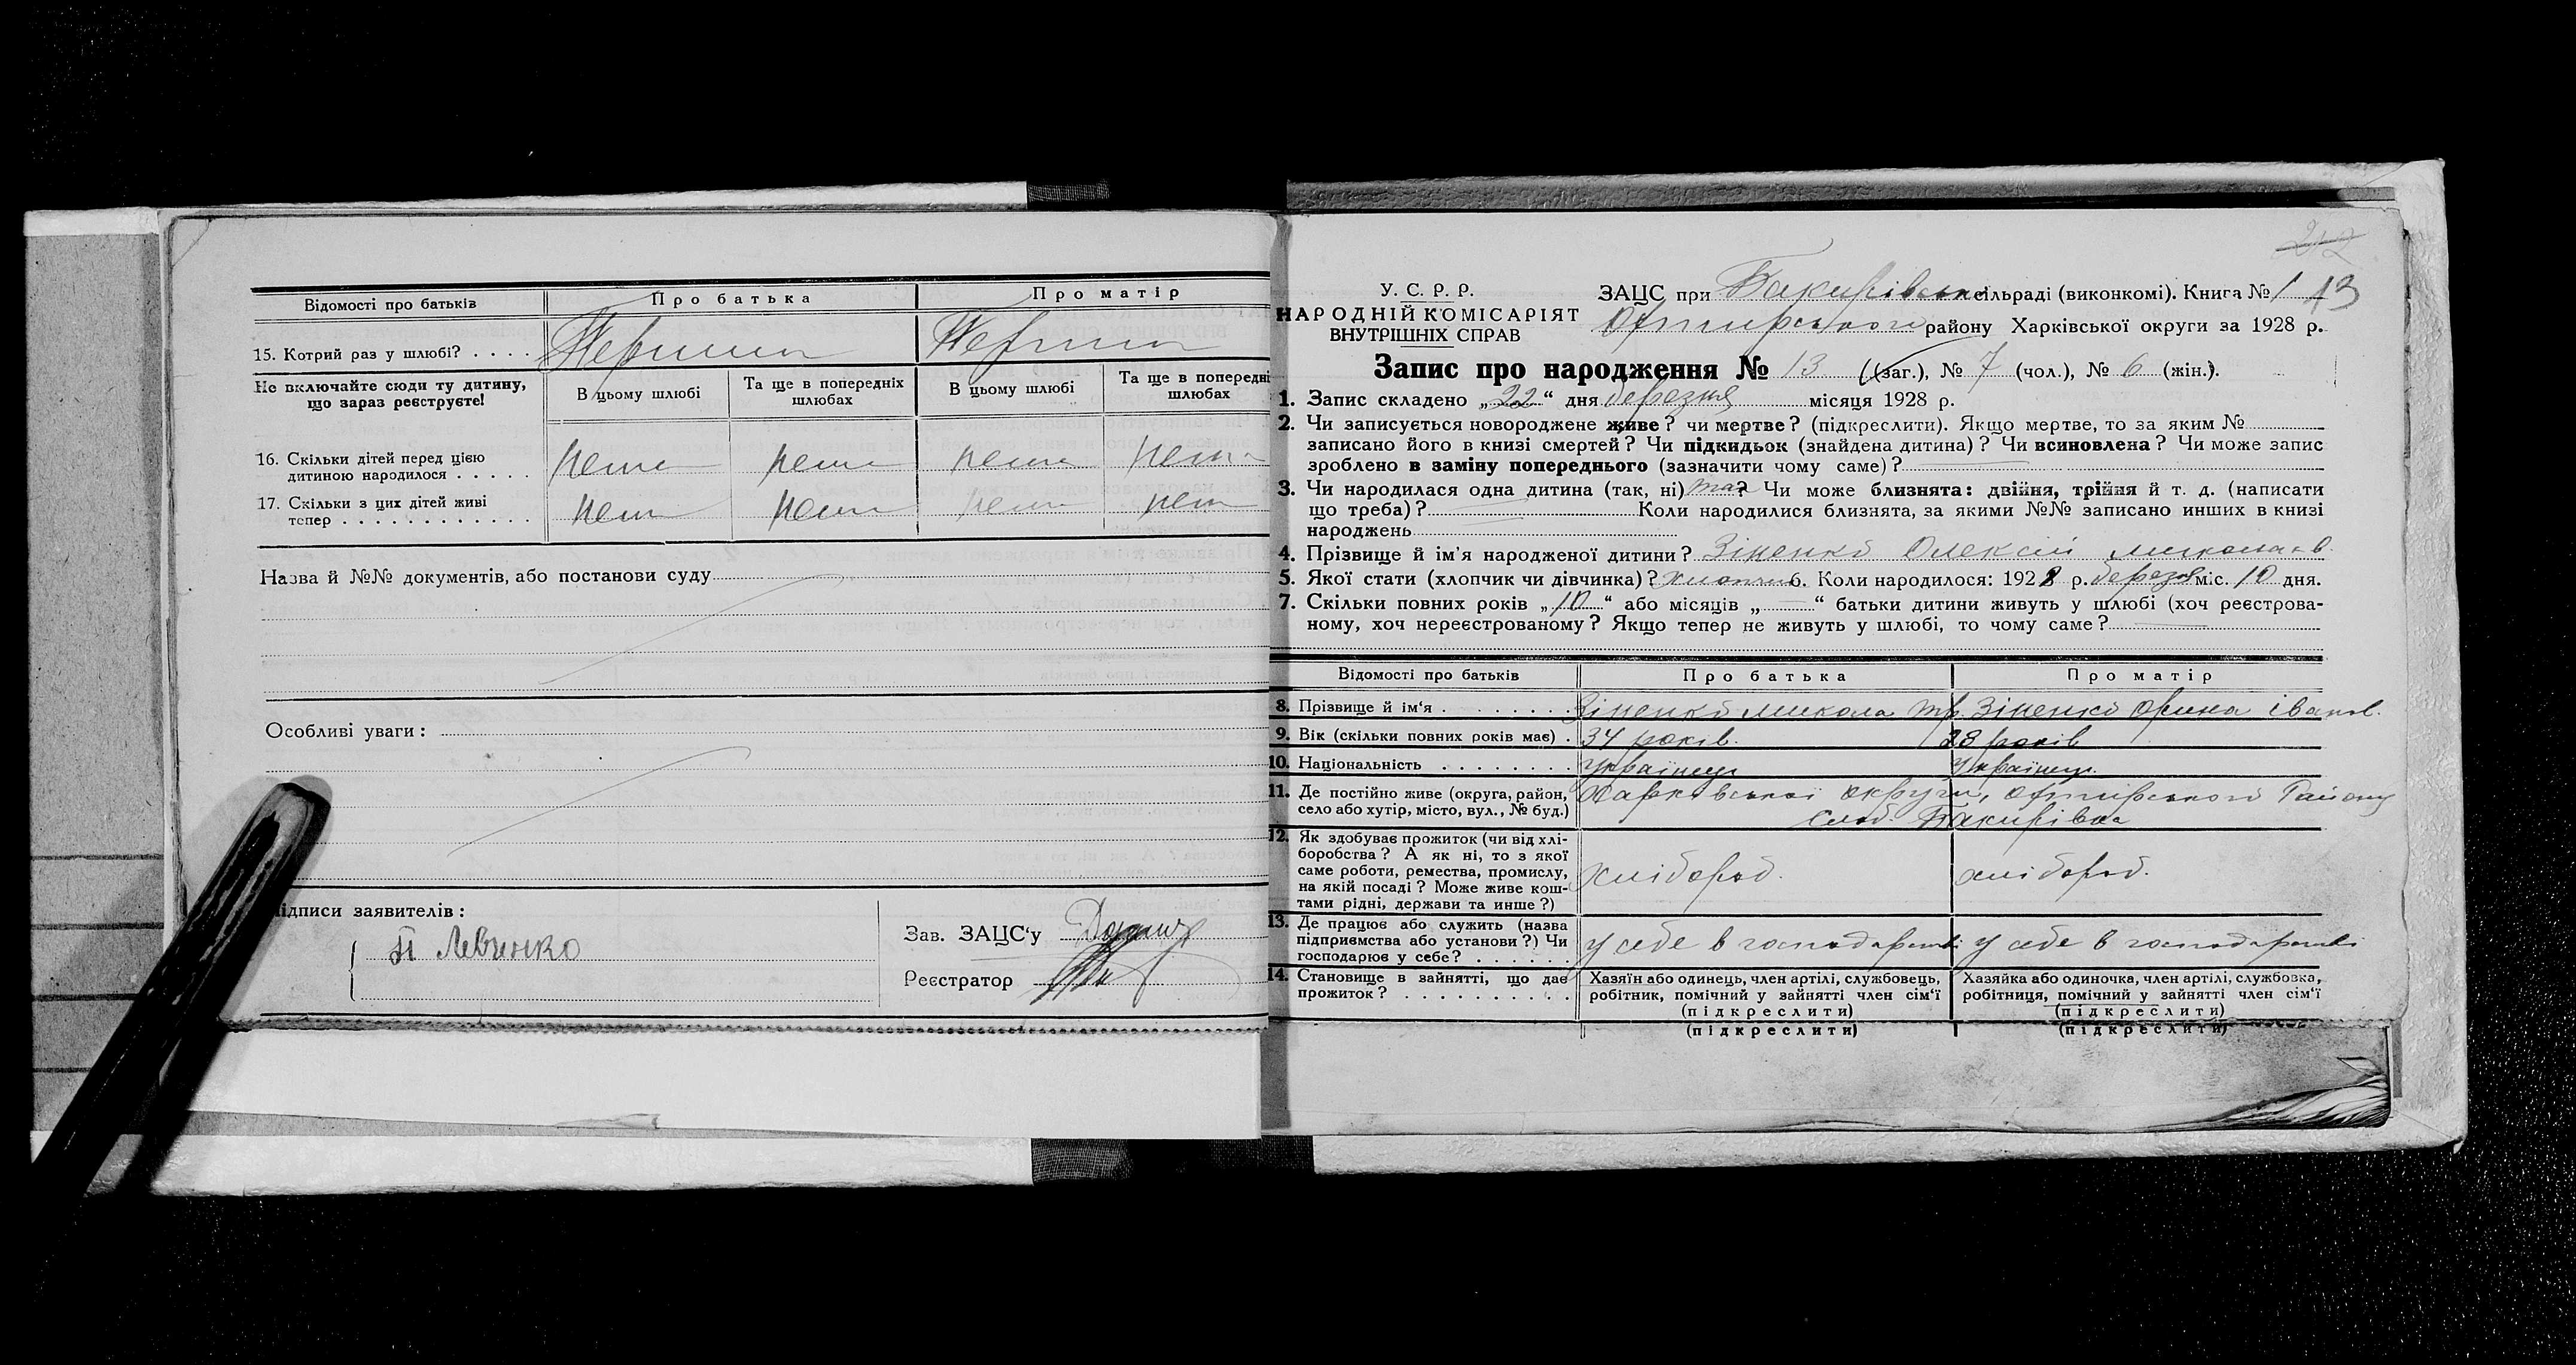 Відомості про батьків Про батька Про матір
15. Котрий раз у шлюбі? . . . . Перший Перший
Не включайте сюди ту дитину, що зараз реєструєте!
В цьому шлюбі Та ще в попередніх шлюбах В цьому шлюбі Та ще в попередні шлюбах
16. Скільки дітей перед цією
дитиною народилося . . . . . нема нема нема нема
17. Скільки з цих дітей живі
тепер . . . . . . . . . . . . . нема нема нема нема
Назва й №№ документів, або постанови суду
Особливі уваги :
ідписи заявителів :
П Левченко
Зав. ЗАЦС'у
Реєстратор
212
У. С. Р. Р.
НАРОДНІЙ КОМІСАРІЯТ
ВНУТРІШНІХ СПРАВ
ЗАЦС при Бакирівській сільраді (виконкомі). Книга № 1 13
Охтирського району Харківської округи за 1928 р.
Запис про народження № 13 (заг.), № 7 (чол.), № 6 (жін.).
1. Запис складено „22“ дня березня місяця 1928 р.
2. Чи записується новороджене живе? чи мертве? (підкреслити). Якщо мертве, то за яким №
записано його в книзі смертей? Чи підкидьок (знайдена дитина)? Чи всиновлена? Чи може запис
зроблено в заміну попереднього (зазначити чому саме)?
3. Чи народилася одна дитина (так, ні) так? Чи може близнята: двійня, трійня й т. д. (написати
що треба)? Коли народилися близнята, за якими №№ записано инших в книзі
народжень
4. Прізвище й ім'я народженої дитини? Зіненко Олексій Миколаєв.
5. Якої стати (хлопчик чи дівчинка)? хлопчик 6. Коли народилося: 1928 р. березня міс. 10 дня.
7. Скільки повних років „10“ або місяців „—“ батьки дитини живуть у шлюбі (хоч реєстрова-
ному, хоч нереєстрованому? Якщо тепер не живуть у шлюбі, то чому саме?
Відомості про батьків Про батька Про матір
8. Прізвище й ім'я . . . . . . . Зіненко Микола Тр. Зіненко Орина Іванов.
9. Вік (скільки повних років має) . 34 років. 28 років
10. Національність . . . . . . . . Українець Українец.
11. Де постійно живе (округа, район,
село або хутір, місто, вул., № буд.) Харківської округи, Охтирського Району
слоб. Бакирівка
12. Як здобуває прожиток (чи від хлі-
боробства? А як ні, то з якої
саме роботи, ремества, промислу,
на якій посаді? Може живе кош-
тами рідні, держави та инше?) хлібороб. хлібороб.
13. Де працює або служить (назва
підприємства або установи?) Чи
господарює у себе? . . . . . . у себе в господарстві у себе в господарстві
14. Становище в зайнятті, що дає
прожиток? . . . . . . . . . .
Хазяїн або одинець, член артілі, службовець,
робітник, помічний у зайнятті член сім'ї
(підкреслити)
Хазяйка або одиночка, член артілі, службовка,
робітниця, помічний у зайнятті член сім'ї
(підкреслити)
(підкреслити) (підкреслити)